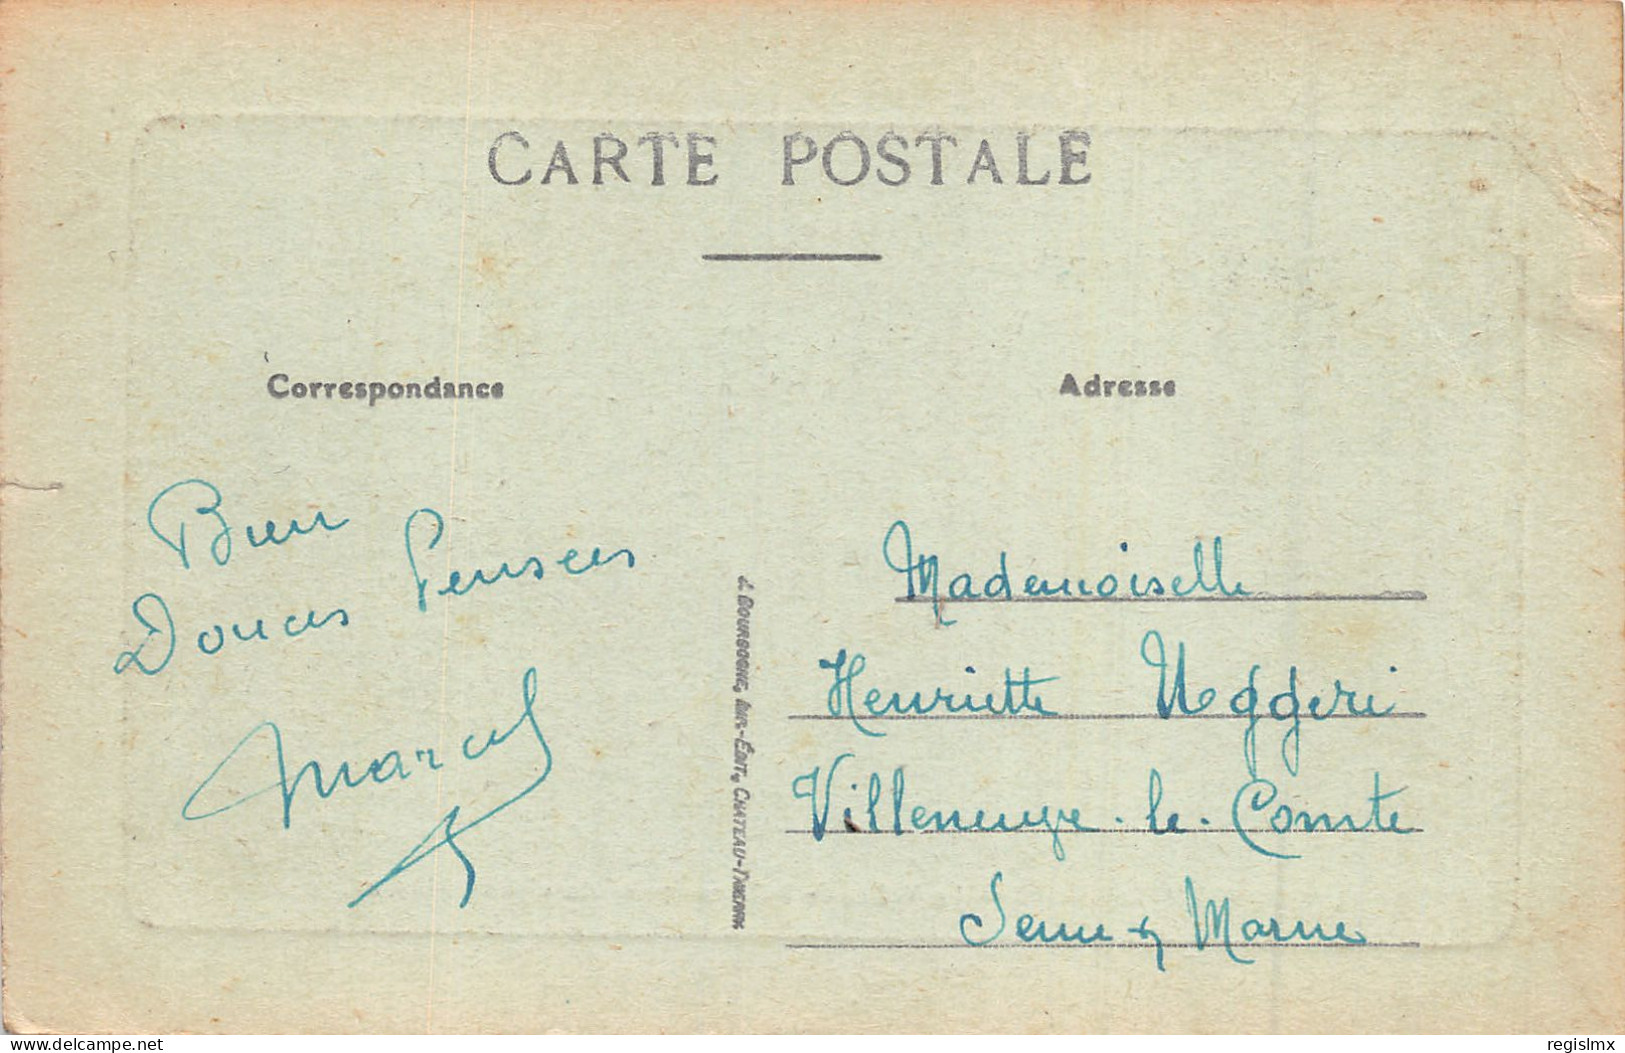 CARTE POSTALE
Correspondance
Adresse
Bien
Douces Pensées
Marcel
J. BOURGOGNE, IMP.-ÉDIT., CHATEAU-THIERRY
Mademoiselle
Henriette Uggeri
Villeneuve-le-Comte
Seine & Marne
www.delcampe.net
regislmx